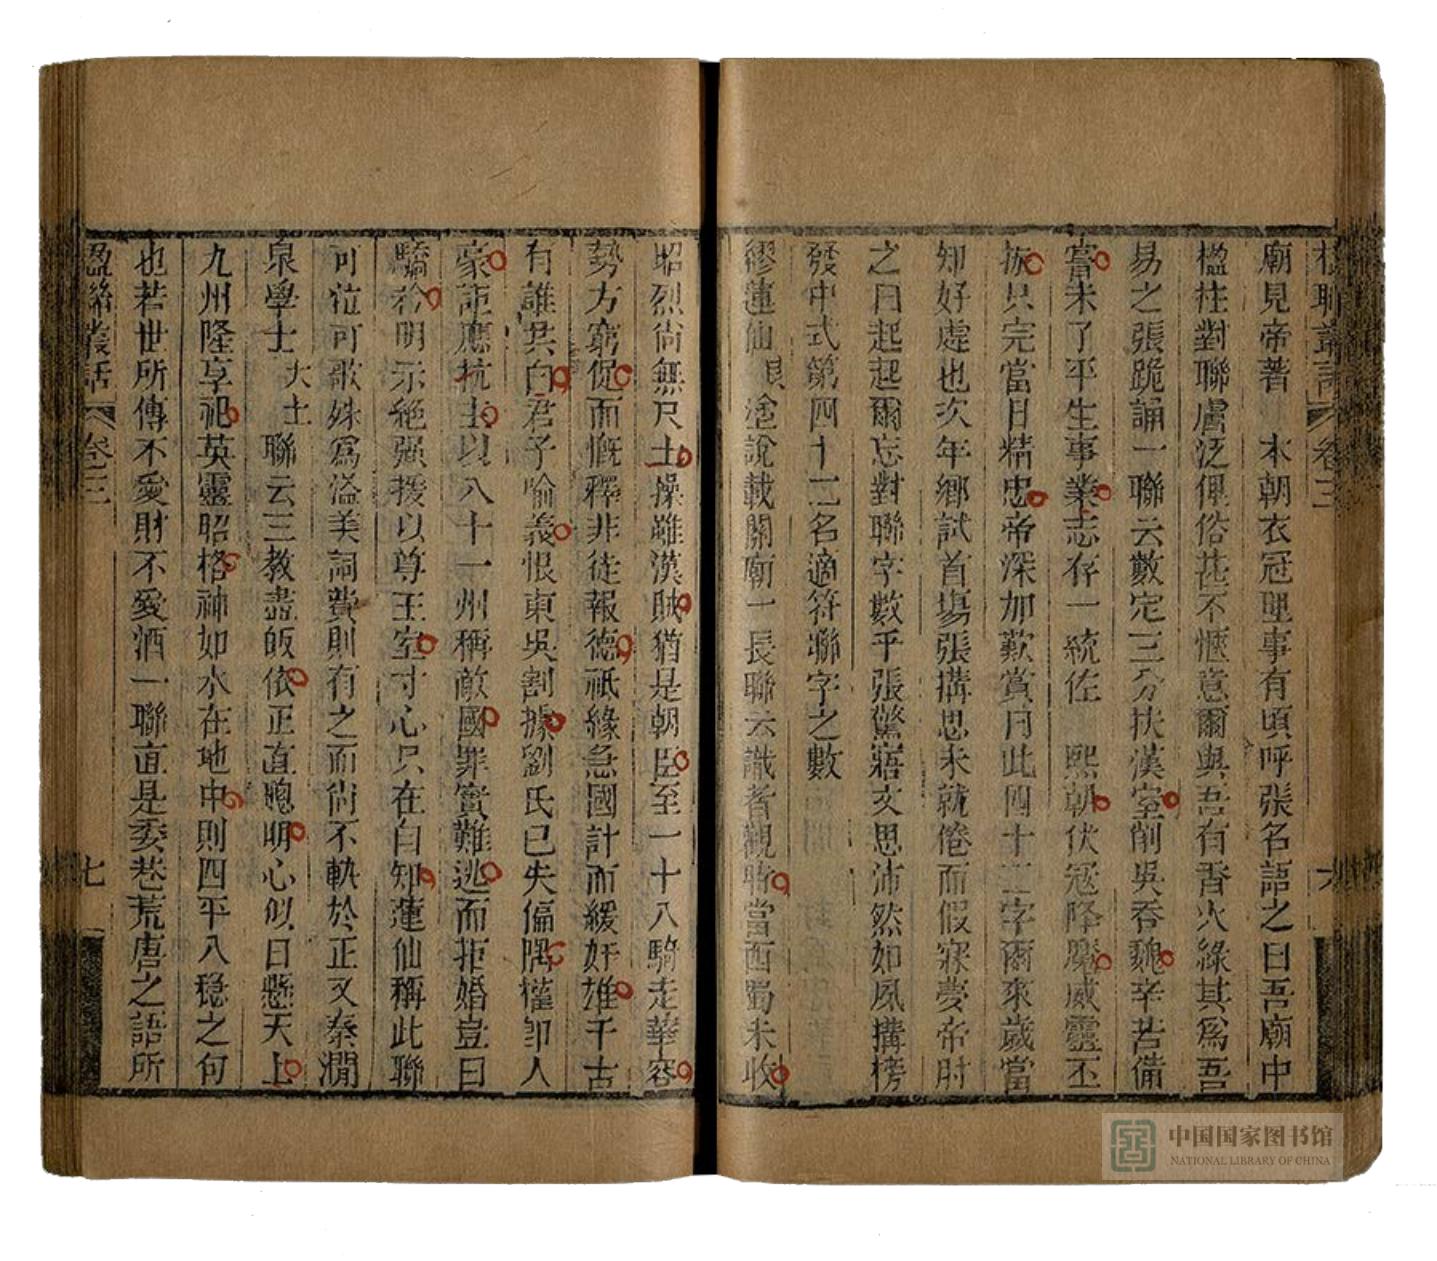 楹聯叢話 卷三 六
廟見帝著 本朝衣冠理事有頃呼張名語之曰吾廟中
楹柱對聯膚泛俚俗甚不愜意爾與吾有香火緣其爲吾
易之張跪誦一聯云數定三分扶漢室削吳吞魏辛苦備
嘗未了平生事業志存一統佐 熙朝伏寇降魔威靈丕
振只完當日精忠帝深加歎賞曰此四十二字爾來歲當
知好處也次年鄉試首塲張搆思未就倦而假寐夢帝肘
之曰起起爾忘對聯字數乎張驚寤文思沛然如風搆榜
發中式第四十二名適符聯字之數
繆蓮仙 塗說載關廟一長聯云識者觀時當西蜀未收
昭烈尙無尺土操雖漢賊猶是朝臣至一十八騎走華容
勢方窮促而慨釋非徒報德祇緣急國計而緩奸雄千古
有誰共白君子喻義恨東吳割據劉氏已失偏隅權卽人
豪詎應抗主以八十一州稱敵國罪實難逃而拒婚豈曰
驕矜明示絕强援以尊王室寸心只在自知蓮仙稱此聯
可涖可歌殊爲溢美詞費則有之而尙不軌於正又秦澗
泉學士 大士 聯云三教盡皈依正直聰明心似日懸天上
九州隆享祀英靈昭格神如水在地中則四平八穩之句
也若世所傳不愛財不愛酒一聯直是委巷荒唐之語所
楹聯叢話 卷三 七
中国国家图书馆
NATIONAL LIBRARY OF CHINA